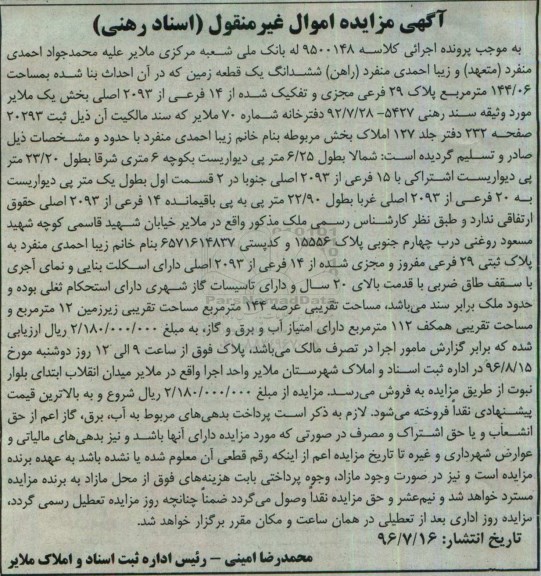 آگهی مزایده اموال غیرمنقول (اسناد رهنی)
به موجب پرونده اجرائی کلاسه ۹۵۰۰۱۴۸ له بانک ملی شعبه مرکزی ملایر علیه محمدجواد احمدی
منفرد (متعهد) و زیبا احمدی منفرد (راهن) ششدانگ یک قطعه زمین که در آن احداث بنا شده بمساحت
۱۴۴/۰۶ مترمربع پلاک ۲۹ فرعی مجزی و تفکیک شده از ۱۴ فرعی از ۲۰۹۳ اصلی بخش یک ملایر
مورد وثیقه سند رهنی ۵۴۲۷- ۹۲/۷/۲۸ دفترخانه شماره ۷۰ ملایر که سند مالکیت آن ذیل ثبت ۲۰۲۹۳
صفحه ۲۳۲ دفتر جلد ۱۲۷ املاک بخش مربوطه بنام خانم زیبا احمدی منفرد با حدود و مشخصات ذیل
صادر و تسلیم گردیده است: شمالا بطول ۶/۲۵ متر پی دیواریست بکوچه ۶ متری شرقا بطول ۲۳/۲۰ متر
پی دیواریست اشتراکی با ۱۵ فرعی از ۲۰۹۳ اصلی جنوبا در ۲ قسمت اول بطول یک متر پی دیواریست
به ۲۰ فرعی از ۲۰۹۳ اصلی غربا بطول ۲۲/۹۰ متر پی به پی باقیمانده ۱۴ فرعی از ۲۰۹۳ اصلی حقوق
ارتفاقی ندارد و طبق نظر کارشناس رسمی ملک مذکور واقع در ملایر خیابان شهید قاسمی کوچه شهید
مسعود روغنی درب چهارم جنوبی پلاک ۱۵۵۵۶ و کدپستی ۶۵۷۱۶۱۴۸۳۷ بنام خانم زیبا احمدی منفرد به
پلاک ثبتی ۲۹ فرعی مفروز و مجزی شده از ۱۴ فرعی از ۲۰۹۳ اصلی دارای اسکلت بنایی و نمای آجری
با سقف طاق ضربی با قدمت بالای ۲۰ سال و دارای تاسیسات گاز شهری دارای استحکام ثقلی بوده و
حدود ملک برابر سند می‌باشد، مساحت تقریبی عرصه ۱۴۴ مترمربع مساحت تقریبی زیرزمین ۱۲ مترمربع و
مساحت تقریبی همکف ۱۱۲ مترمربع دارای امتیاز آب و برق و گاز، به مبلغ ۲/۱۸۰/۰۰۰/۰۰۰ ریال ارزیابی
شده که برابر گزارش مامور اجرا در تصرف مالک می‌باشد، پلاک فوق از ساعت ۹ الی ۱۲ روز دوشنبه مورخ
۹۶/۸/۱۵ در اداره ثبت اسناد و املاک شهرستان ملایر واحد اجرا واقع در ملایر میدان انقلاب ابتدای بلوار
نبوت از طریق مزایده به فروش می‌رسد. مزایده از مبلغ ۲/۱۸۰/۰۰۰/۰۰۰ ریال شروع و به بالاترین قیمت
پیشنهادی نقداً فروخته می‌شود. لازم به ذکر است پرداخت بدهی‌های مربوط به آب، برق، گاز اعم از حق
انشعاب و یا حق اشتراک و مصرف در صورتی که مورد مزایده دارای آنها باشد و نیز بدهی‌های مالیاتی و
عوارض شهرداری و غیره تا تاریخ مزایده اعم از اینکه رقم قطعی آن معلوم شده یا نشده باشد به عهده برنده
مزایده است و نیز در صورت وجود مازاد، وجوه پرداختی بابت هزینه‌های فوق از محل مازاد به برنده مزایده
مسترد خواهد شد و نیم‌عشر و حق مزایده نقداً وصول می‌گردد ضمناً چنانچه روز مزایده تعطیل رسمی گردد،
مزایده روز اداری بعد از تعطیلی در همان ساعت و مکان مقرر برگزار خواهد شد.
تاریخ انتشار: ۹۶/۷/۱۶
محمدرضا امینی – رئیس اداره ثبت اسناد و املاک ملایر